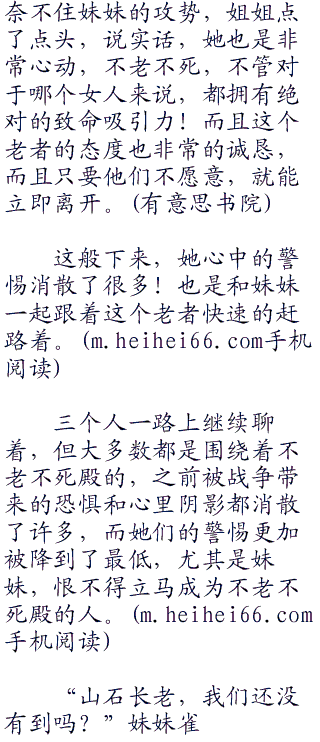 奈不住妹妹的攻势，姐姐点
了点头，说实话，她也是非
常心动，不老不死，不管对
于哪个女人来说，都拥有绝
对的致命吸引力！而且这个
老者的态度也非常的诚恳，
而且只要他们不愿意，就能
立即离开。(有意思书院)
这般下来，她心中的警
惕消散了很多！也是和妹妹
一起跟着这个老者快速的赶
路着。(m.heihei66.com手机
阅读)
三个人一路上继续聊
着，但大多数都是围绕着不
老不死殿的，之前被战争带
来的恐惧和心里阴影都消散
了许多，而她们的警惕更加
被降到了最低，尤其是妹
妹，恨不得立马成为不老不
死殿的人。(m.heihei66.com
手机阅读)
“山石长老，我们还没
有到吗？”妹妹雀